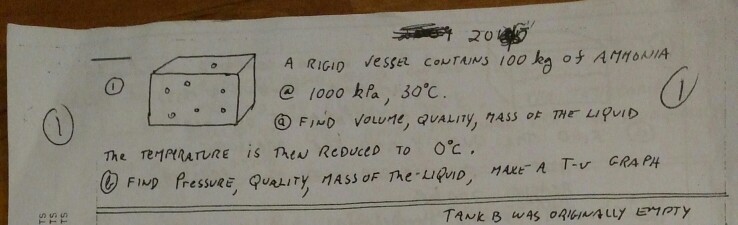 20
① A RIGID VESSEL CONTAINS 100 kg of AMMONIA
@ 1000 kPa, 30°C. ①
① ⓐ FIND VOLUME, QUALITY, MASS OF THE LIQUID
The TEMPERATURE is Then REDUCED TO 0°C.
ⓑ FIND PRESSURE, QUALITY, MASS OF The LIQUID, MAKE A T-v GRAPH
TS TS TS
TANK B WAS ORIGINALLY EMPTY